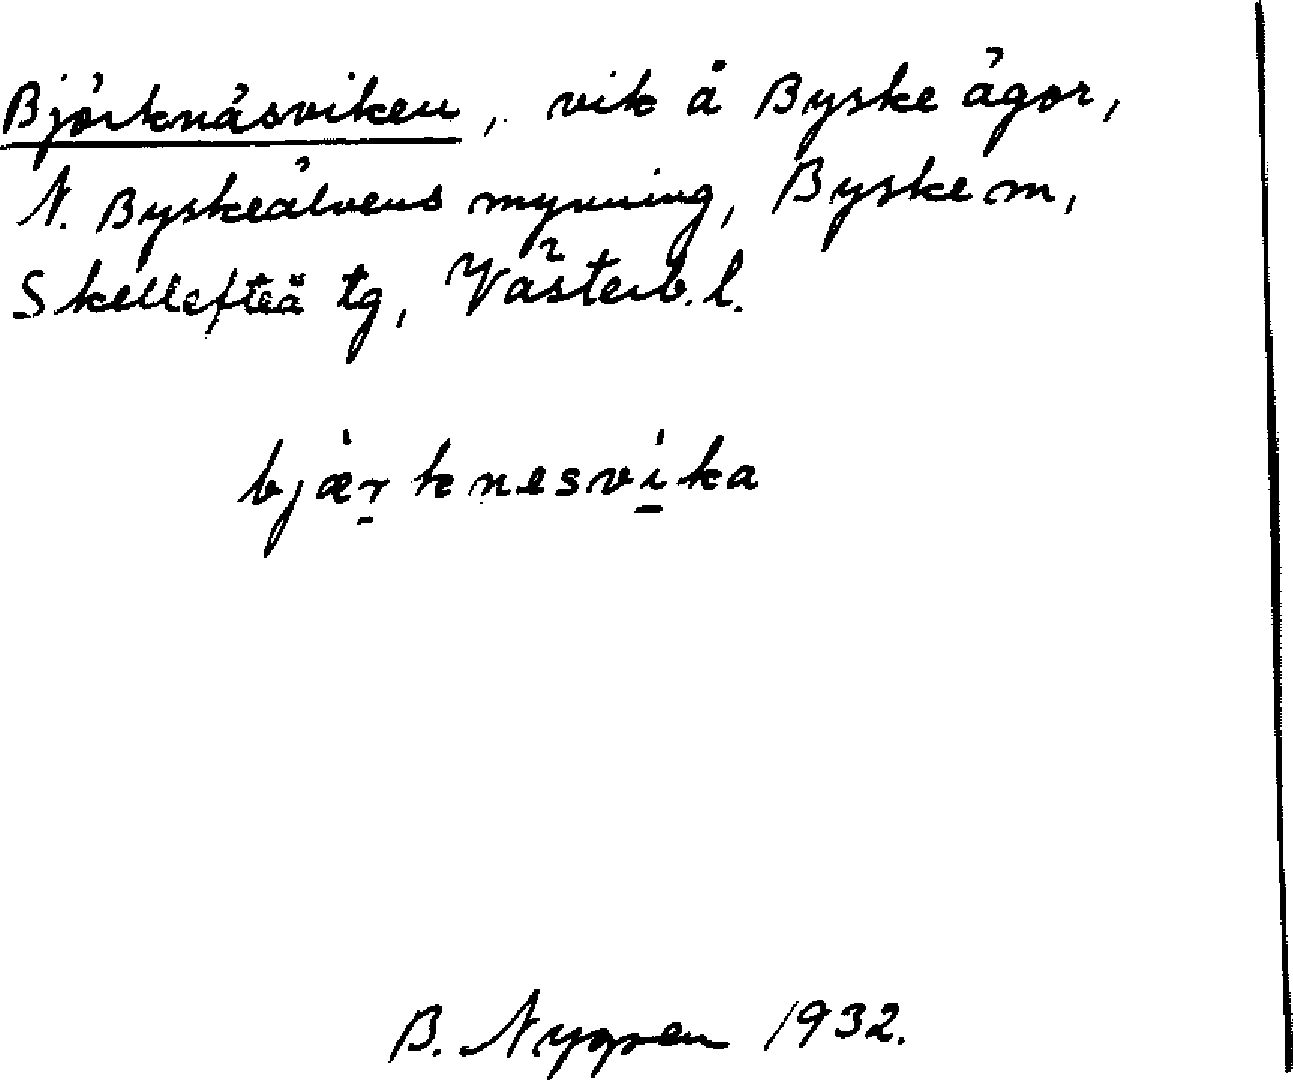 Björknäsviken, vik å Byske ägor,
N. Byskeälvens mynning, Byske m,
Skellefteå tg, Västerb. l.
bjæ̀r̠knesví̠ka
B. Nygren 1932.